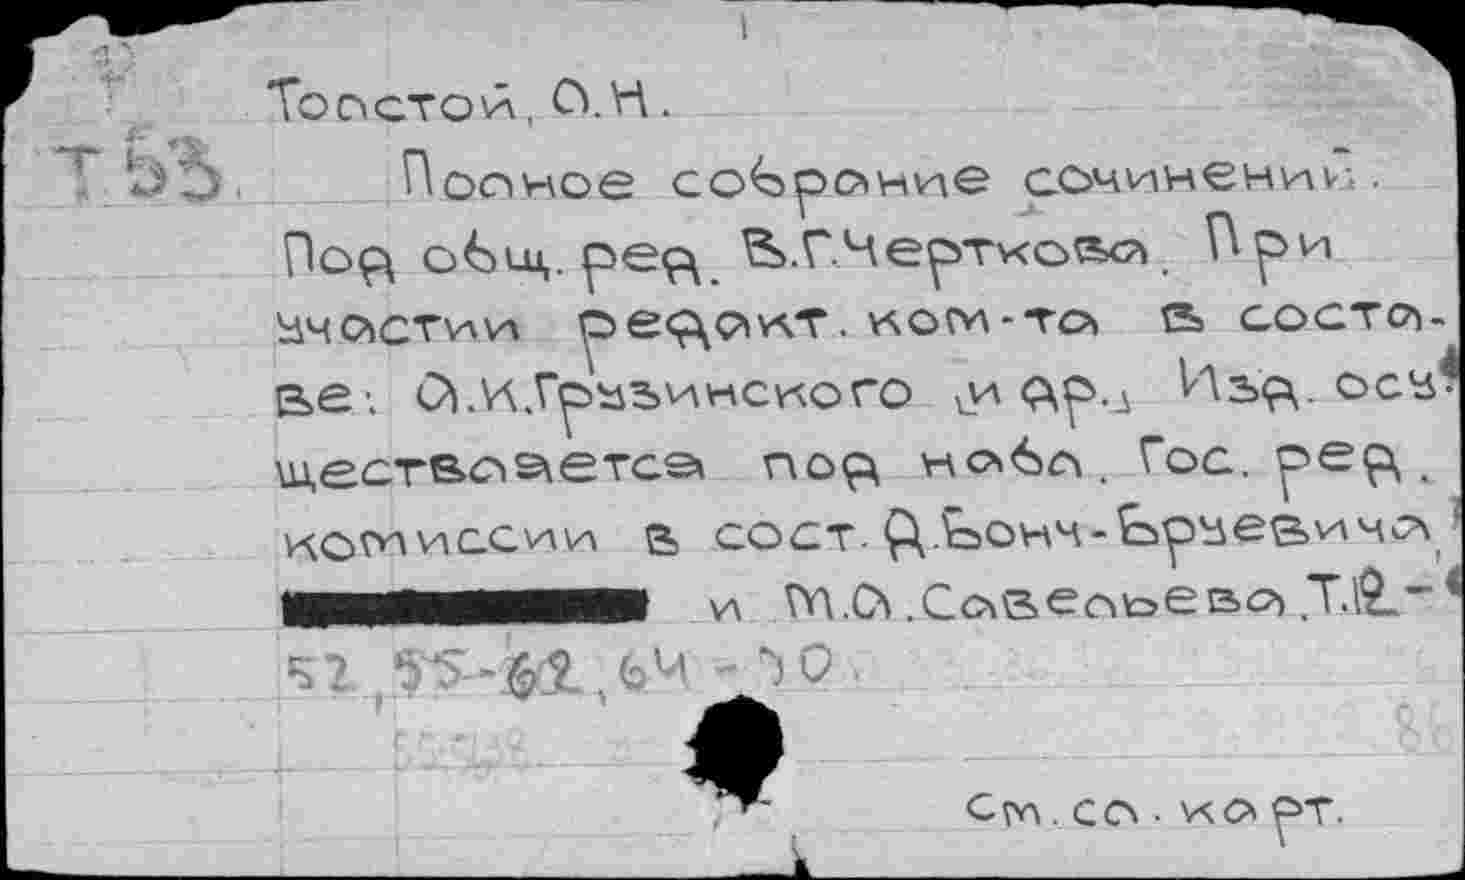 Т 53.
Толстой, Л.Н.
Полное собрание сочинений.
Под общ. ред. В.Г.Черткова. При
участии редакт. ком-та в соста-
ве: А.К.Грузинского и др. Изд. осу-
ществляется под набл. Гос. ред.
комиссии в сост. Д.Бонч-Бруевича,
и М.А.Савельева. Т.19-
52, 55-62, 64-90.
См. сл. карт.